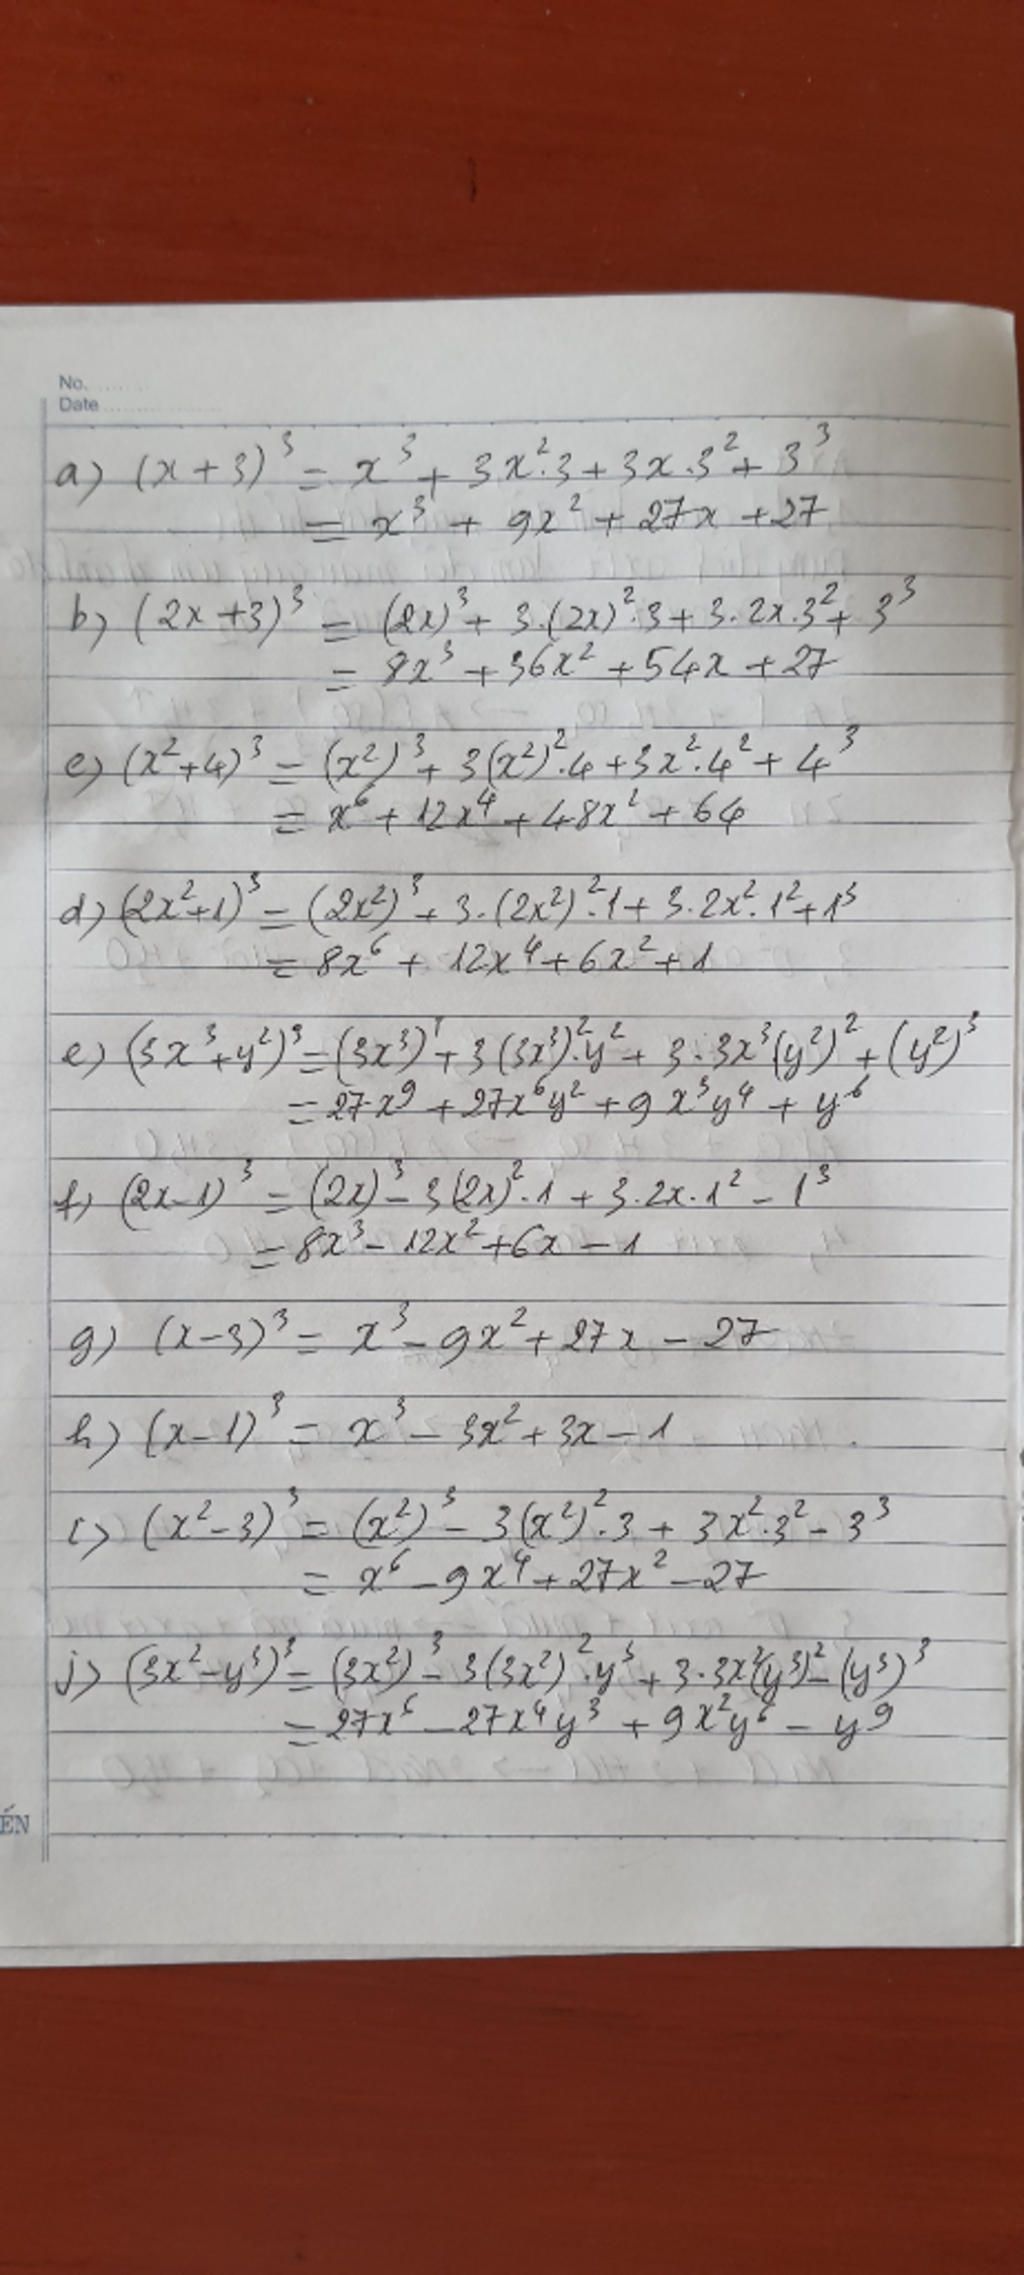 No. ..........
Date ....................
a) (x+3)³ = x³ + 3x².3 + 3x.3² + 3³
= x³ + 9x² + 27x + 27
b) (2x+3)³ = (2x)³ + 3.(2x)².3 + 3.2x.3² + 3³
= 8x³ + 36x² + 54x + 27
c) (x²+4)³ = (x²)³ + 3(x²)².4 + 3x².4² + 4³
= x⁶ + 12x⁴ + 48x² + 64
d) (2x²+1)³ = (2x²)³ + 3.(2x²)².1 + 3.2x².1² + 1³
= 8x⁶ + 12x⁴ + 6x² + 1
e) (3x³+y²)³ = (3x³)³ + 3(3x³)².y² + 3.3x³(y²)² + (y²)³
= 27x⁹ + 27x⁶y² + 9x³y⁴ + y⁶
f) (2x-1)³ = (2x)³ - 3(2x)².1 + 3.2x.1² - 1³
= 8x³ - 12x² + 6x - 1
g) (x-3)³ = x³ - 9x² + 27x - 27
h) (x-1)³ = x³ - 3x² + 3x - 1
i) (x²-3)³ = (x²)³ - 3(x²)².3 + 3x².3² - 3³
= x⁶ - 9x⁴ + 27x² - 27
j) (3x²-y³)³ = (3x²)³ - 3(3x²)².y³ + 3.3x²(y³)² - (y³)³
= 27x⁶ - 27x⁴y³ + 9x²y⁶ - y⁹
ẾN